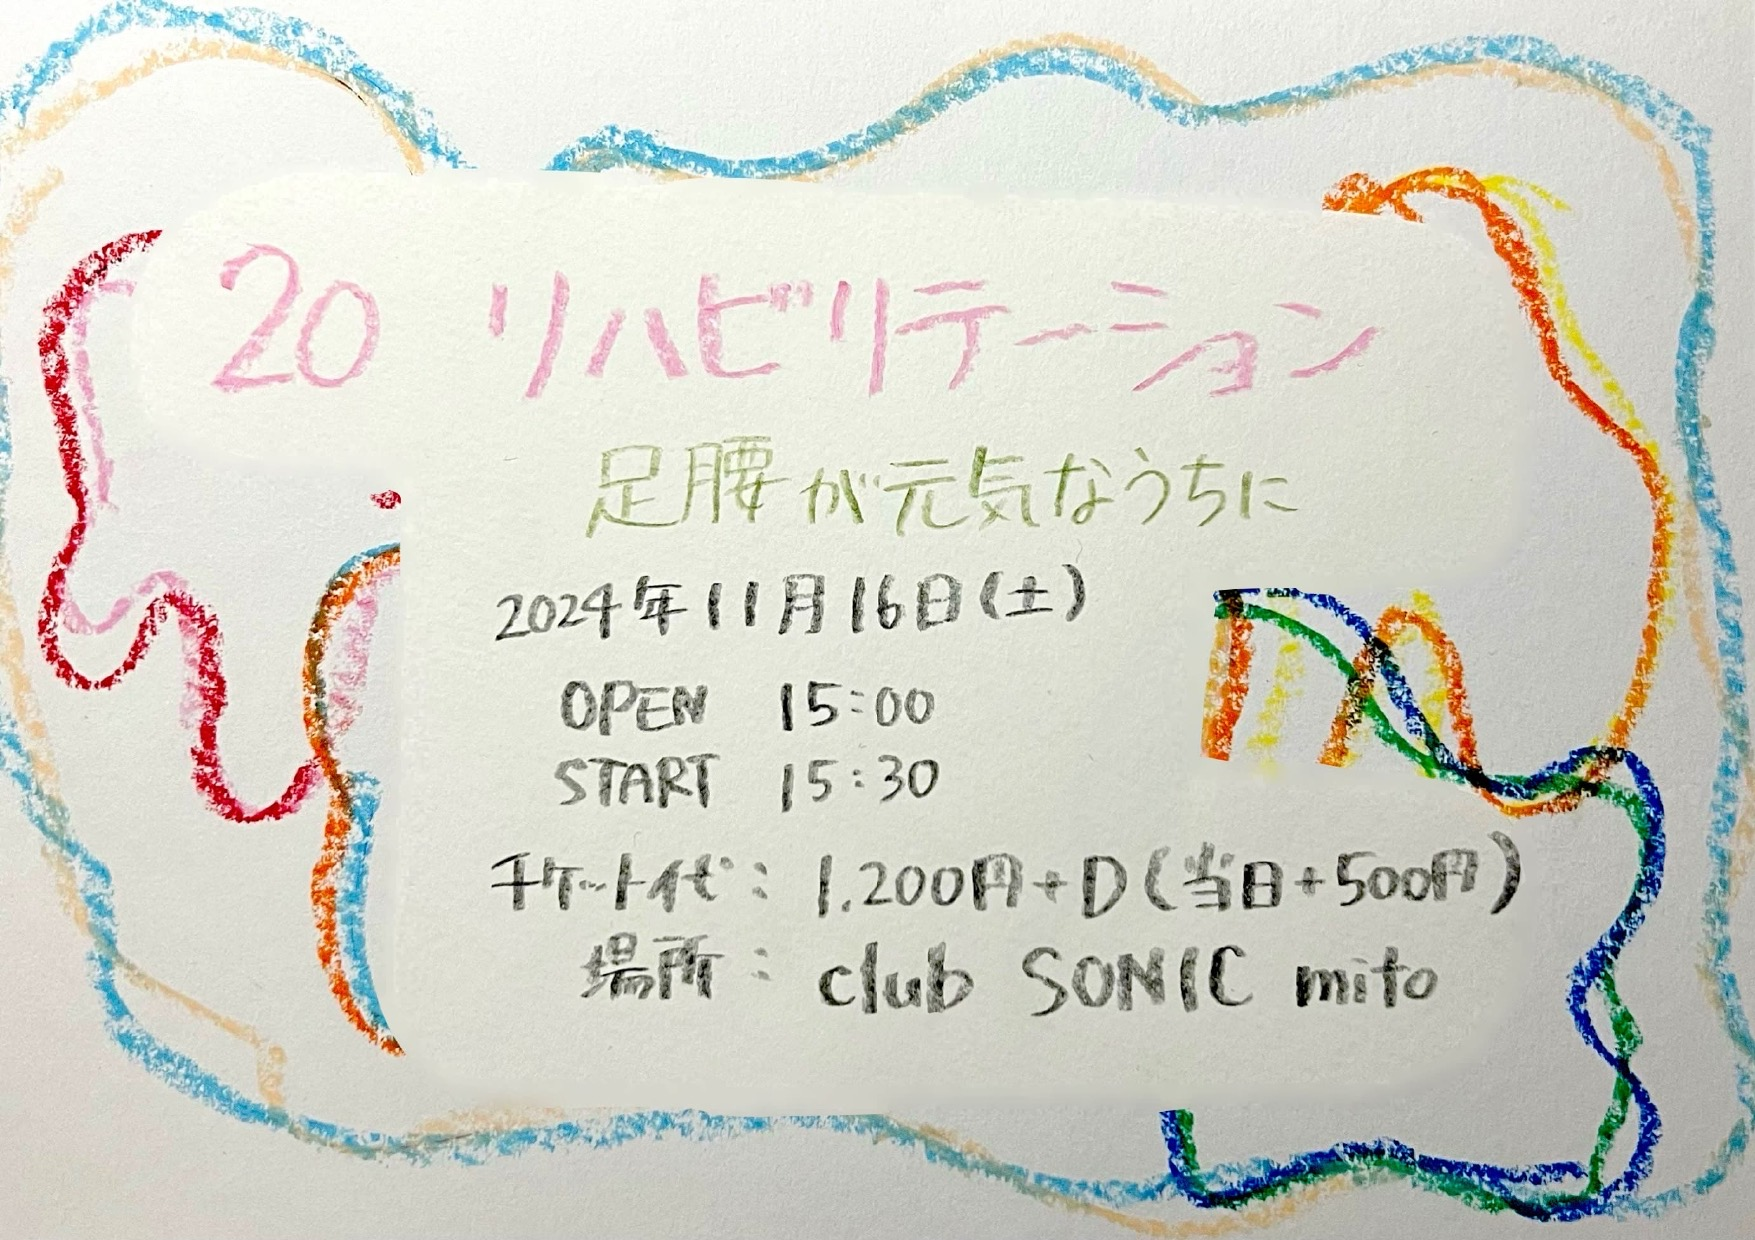 20 リハビリテーション
足腰が元気なうちに
2024年11月16日(土)
OPEN 15:00
START 15:30
チケット代: 1.200円+D(当日+500円)
場所: club SONIC mito